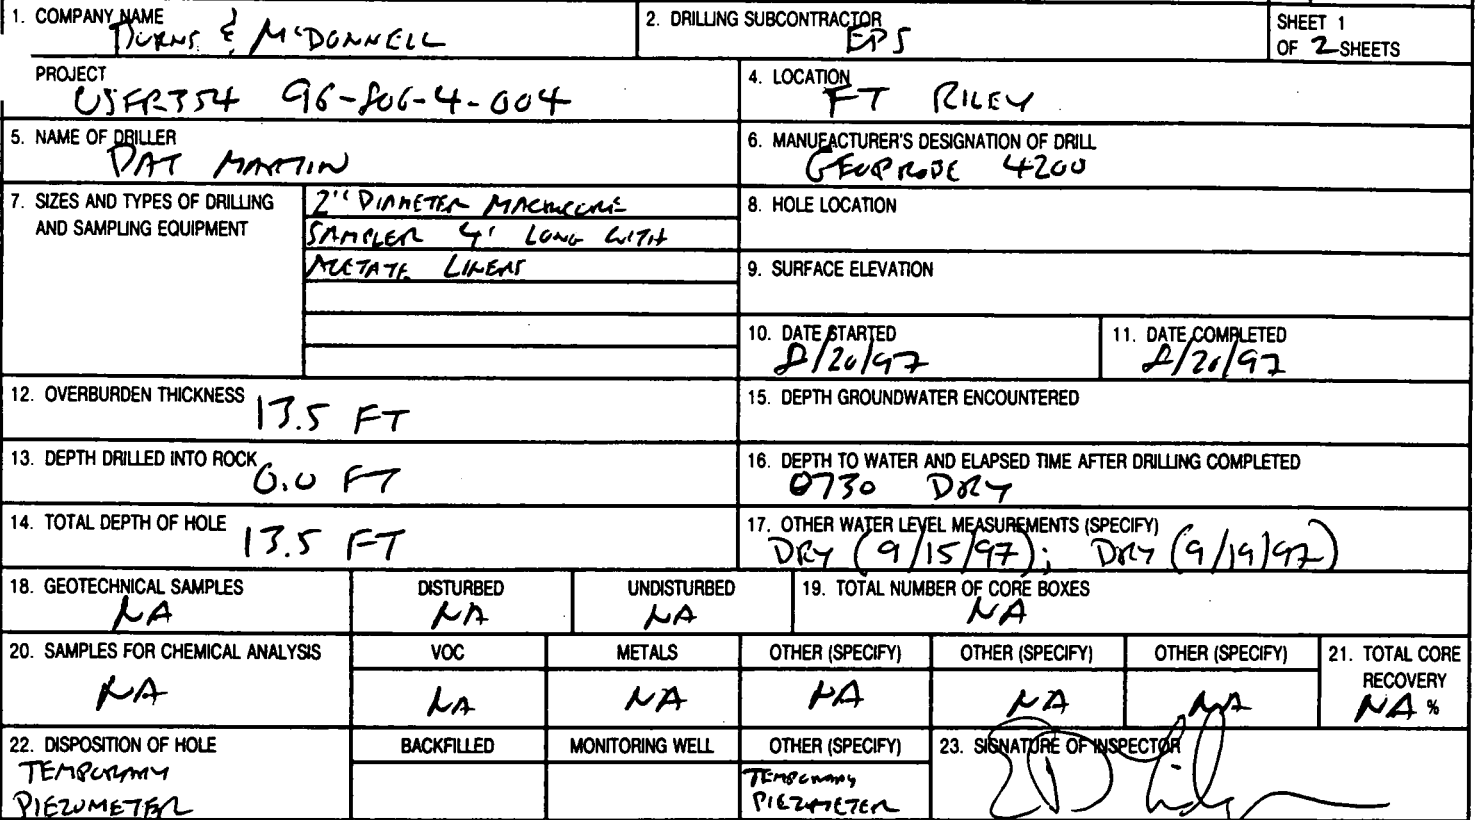 1. COMPANY NAME
BURNS & McDONNELL
2. DRILLING SUBCONTRACTOR
EPS
SHEET 1
OF 2 SHEETS
PROJECT
USFR354 96-806-4-004
4. LOCATION
FT RILEY
5. NAME OF DRILLER
PAT MARTIN
6. MANUFACTURER'S DESIGNATION OF DRILL
GEOPROBE 4200
7. SIZES AND TYPES OF DRILLING
AND SAMPLING EQUIPMENT
2" DIAMETER MACROCORE
SAMPLER 4' LONG WITH
ACETATE LINERS
8. HOLE LOCATION
9. SURFACE ELEVATION
10. DATE STARTED
8/20/97
11. DATE COMPLETED
8/20/97
12. OVERBURDEN THICKNESS
13.5 FT
15. DEPTH GROUNDWATER ENCOUNTERED
13. DEPTH DRILLED INTO ROCK
0.0 FT
16. DEPTH TO WATER AND ELAPSED TIME AFTER DRILLING COMPLETED
0730 DRY
14. TOTAL DEPTH OF HOLE
13.5 FT
17. OTHER WATER LEVEL MEASUREMENTS (SPECIFY)
DRY (9/15/97); DRY (9/19/97)
18. GEOTECHNICAL SAMPLES
NA
DISTURBED
NA
UNDISTURBED
NA
19. TOTAL NUMBER OF CORE BOXES
NA
20. SAMPLES FOR CHEMICAL ANALYSIS
NA
VOC
NA
METALS
NA
OTHER (SPECIFY)
NA
OTHER (SPECIFY)
NA
OTHER (SPECIFY)
NA
21. TOTAL CORE
RECOVERY
NA %
22. DISPOSITION OF HOLE
TEMPORARY
PIEZOMETER
BACKFILLED
MONITORING WELL
OTHER (SPECIFY)
TEMPORARY
PIEZOMETER
23. SIGNATURE OF INSPECTOR